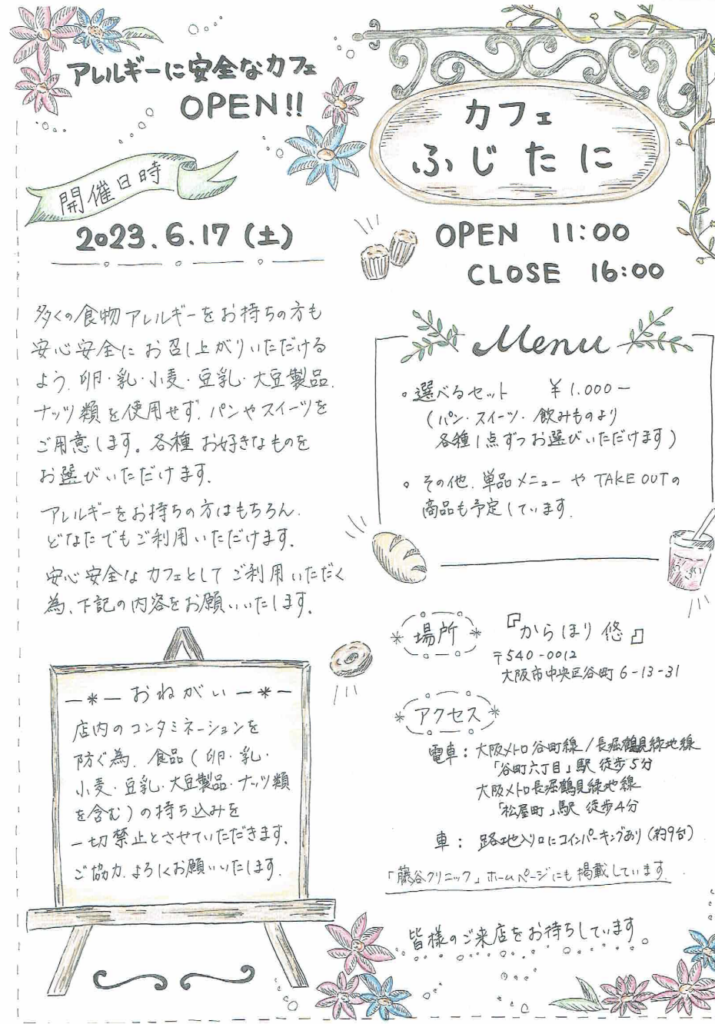 アレルギーに安全なカフェ
OPEN!!
開催日時
2023.6.17(土)
多くの食物アレルギーをお持ちの方も
安心安全にお召し上がりいただける
よう、卵・乳・小麦・豆乳・大豆製品、
ナッツ類を使用せず、パンやスイーツを
ご用意します。各種お好きなものを
お選びいただけます。
アレルギーをお持ちの方はもちろん、
どなたでもご利用いただけます。
安心安全なカフェとしてご利用いただく
為、下記の内容をお願いいたします。
おねがい
店内のコンタミネーションを
防ぐ為、食品(卵・乳・
小麦・豆乳・大豆製品・ナッツ類
を含む)の持ち込みを
一切禁止とさせていただきます。
ご協力、よろしくお願いいたします。
カフェ
ふじたに
OPEN 11:00
CLOSE 16:00
Menu
。選べるセット ¥1.000−
(パン・スイーツ・飲みものより
各種1点ずつお選びいただけます)
。その他、単品メニューやTAKE OUTの
商品も予定しています。
場所
『からほり 悠』
〒540-0012
大阪市中央区谷町6-13-31
アクセス
電車:大阪メトロ谷町線/長堀鶴見緑地線
「谷町六丁目」駅 徒歩5分
大阪メトロ長堀鶴見緑地線
「松屋町」駅 徒歩4分
車:路地入り口にコインパーキングあり(約9台)
「藤谷クリニック」ホームページにも掲載しています
皆様のご来店をお待ちしています